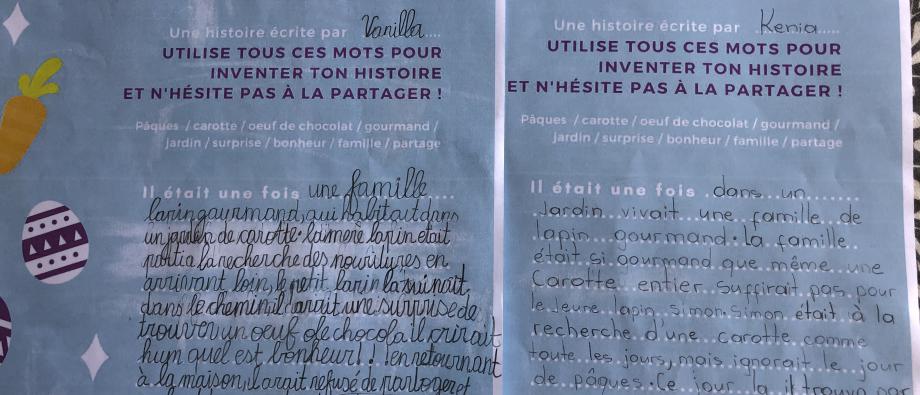 Une histoire écrite par Vanilla.....
UTILISE TOUS CES MOTS POUR
INVENTER TON HISTOIRE
ET N'HÉSITE PAS À LA PARTAGER !
Pâques / carotte / oeuf de chocolat / gourmand /
jardin / surprise / bonheur / famille / partage
Il était une fois une famille....
lapin gourmand, qui habitait dans
un jardin de carotte. la mère lapin était
partia la recherche des nourritures en
arrivant loin, le petit lapin la suivait,
dans le chemin, il avait une surprise de
trouver un oeuf de chocola il crirait
hum quel est bonheur! ! en retournant
à la maison, il avait refusé de partager et
Une histoire écrite par ..Kenia.....
UTILISE TOUS CES MOTS POUR
INVENTER TON HISTOIRE
ET N'HÉSITE PAS À LA PARTAGER !
Pâques / carotte / oeuf de chocolat / gourmand /
jardin / surprise / bonheur / famille / partage
Il était une fois .dans un........
Jardin vivait une famille de
lapin gourmand. la famille
était si gourmand que même une
Carotte entier suffirait pas pour
le jeune lapin simon. Simon était à la
recherche d'une carotte comme
toute les jours, mais ignorait le jour
de pâques. Ce jour la il trouva par